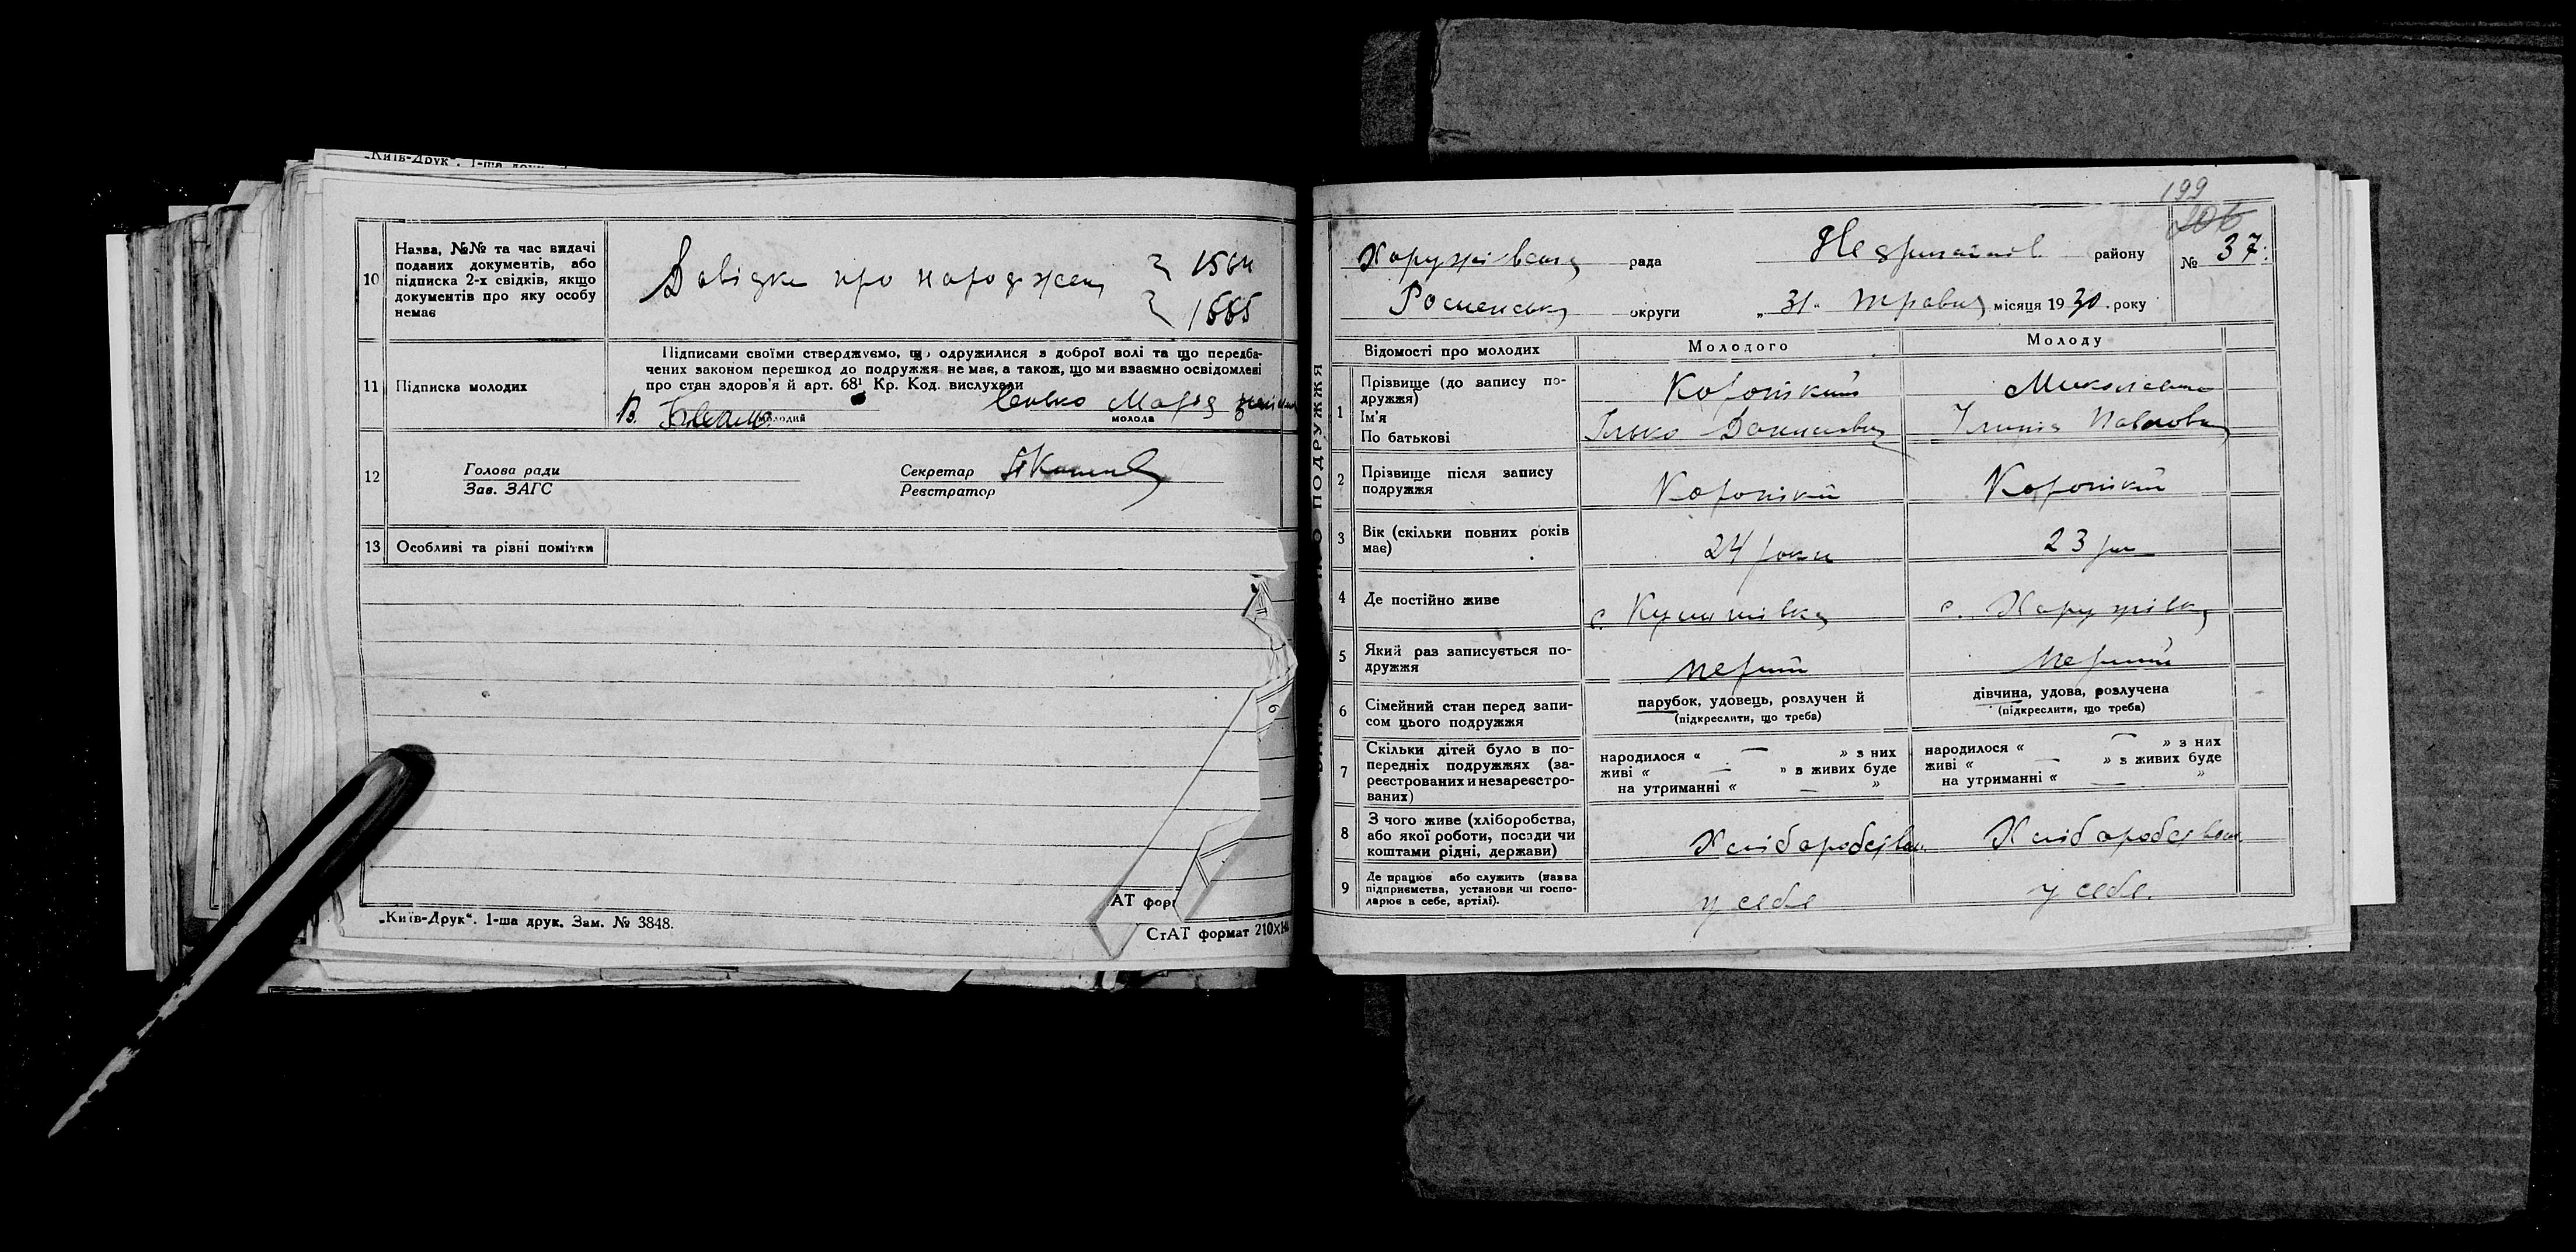 „Київ-Друк". 1-ша друк.
10 Назва, №№ та час видачі
поданих документів, або
підписка 2-х свідків, якщо
документів про яку особу
немає
Довідки про народжен
1564
1665
11 Підписка молодих
Підписами своїми стверджуємо, що одружилися з доброї волі та що передба-
чених законом перешкод до подружжя не має, а також, що ми взаємно освідомлені
про стан здоров'я й арт. 68¹ Кр. Код. вислухали
В.
молодий
Марія
молода
12 Голова ради
Зав. ЗАГС
Секретар
Реєстратор
13 Особливі та різні помітки
АТ фор
„Київ-Друк". 1-ша друк. Зам. № 3848.
СтАТ формат 210
ПОДРУЖЖЯ
199
106
Хоружівська рада
Недригайлів району
№ 37.
Роменськ округи
„ 31 " травня місяця 1930 року
Відомості про молодих
Молодого
Молоду
1 Прізвище (до запису по-
дружжя)
Ім'я
По батькові
Коропікий
Ілько
Павловна
2 Прізвище після запису
подружжя
Коропікий
Коропікий
3 Вік (скільки повних років
має)
24 роки
23 р
4 Де постійно живе
с.
с. Хоружівка
5 Який раз записується по-
дружжя
перший
перший
6 Сімейний стан перед запи-
сом цього подружжя
парубок, удовець, розлучен й
(підкреслити, що треба)
дівчина, удова, розлучена
(підкреслити, що треба)
7 Скільки дітей було в по-
передніх подружжях (за-
реєстрованих и незареєстро-
ваних)
народилося « — » з них
живі « — » в живих буде
на утриманні « — »
народилося « — » з них
живі « — » в живих буде
на утриманні « — »
8 З чого живе (хліборобства,
або якої роботи, посади чи
коштами рідні, держави)
Хліборобства
Хліборобством
9 Де працює або служить (назва
підприємства, установи чи госпо-
дарює в себе, артілі).
у себе
у себе.